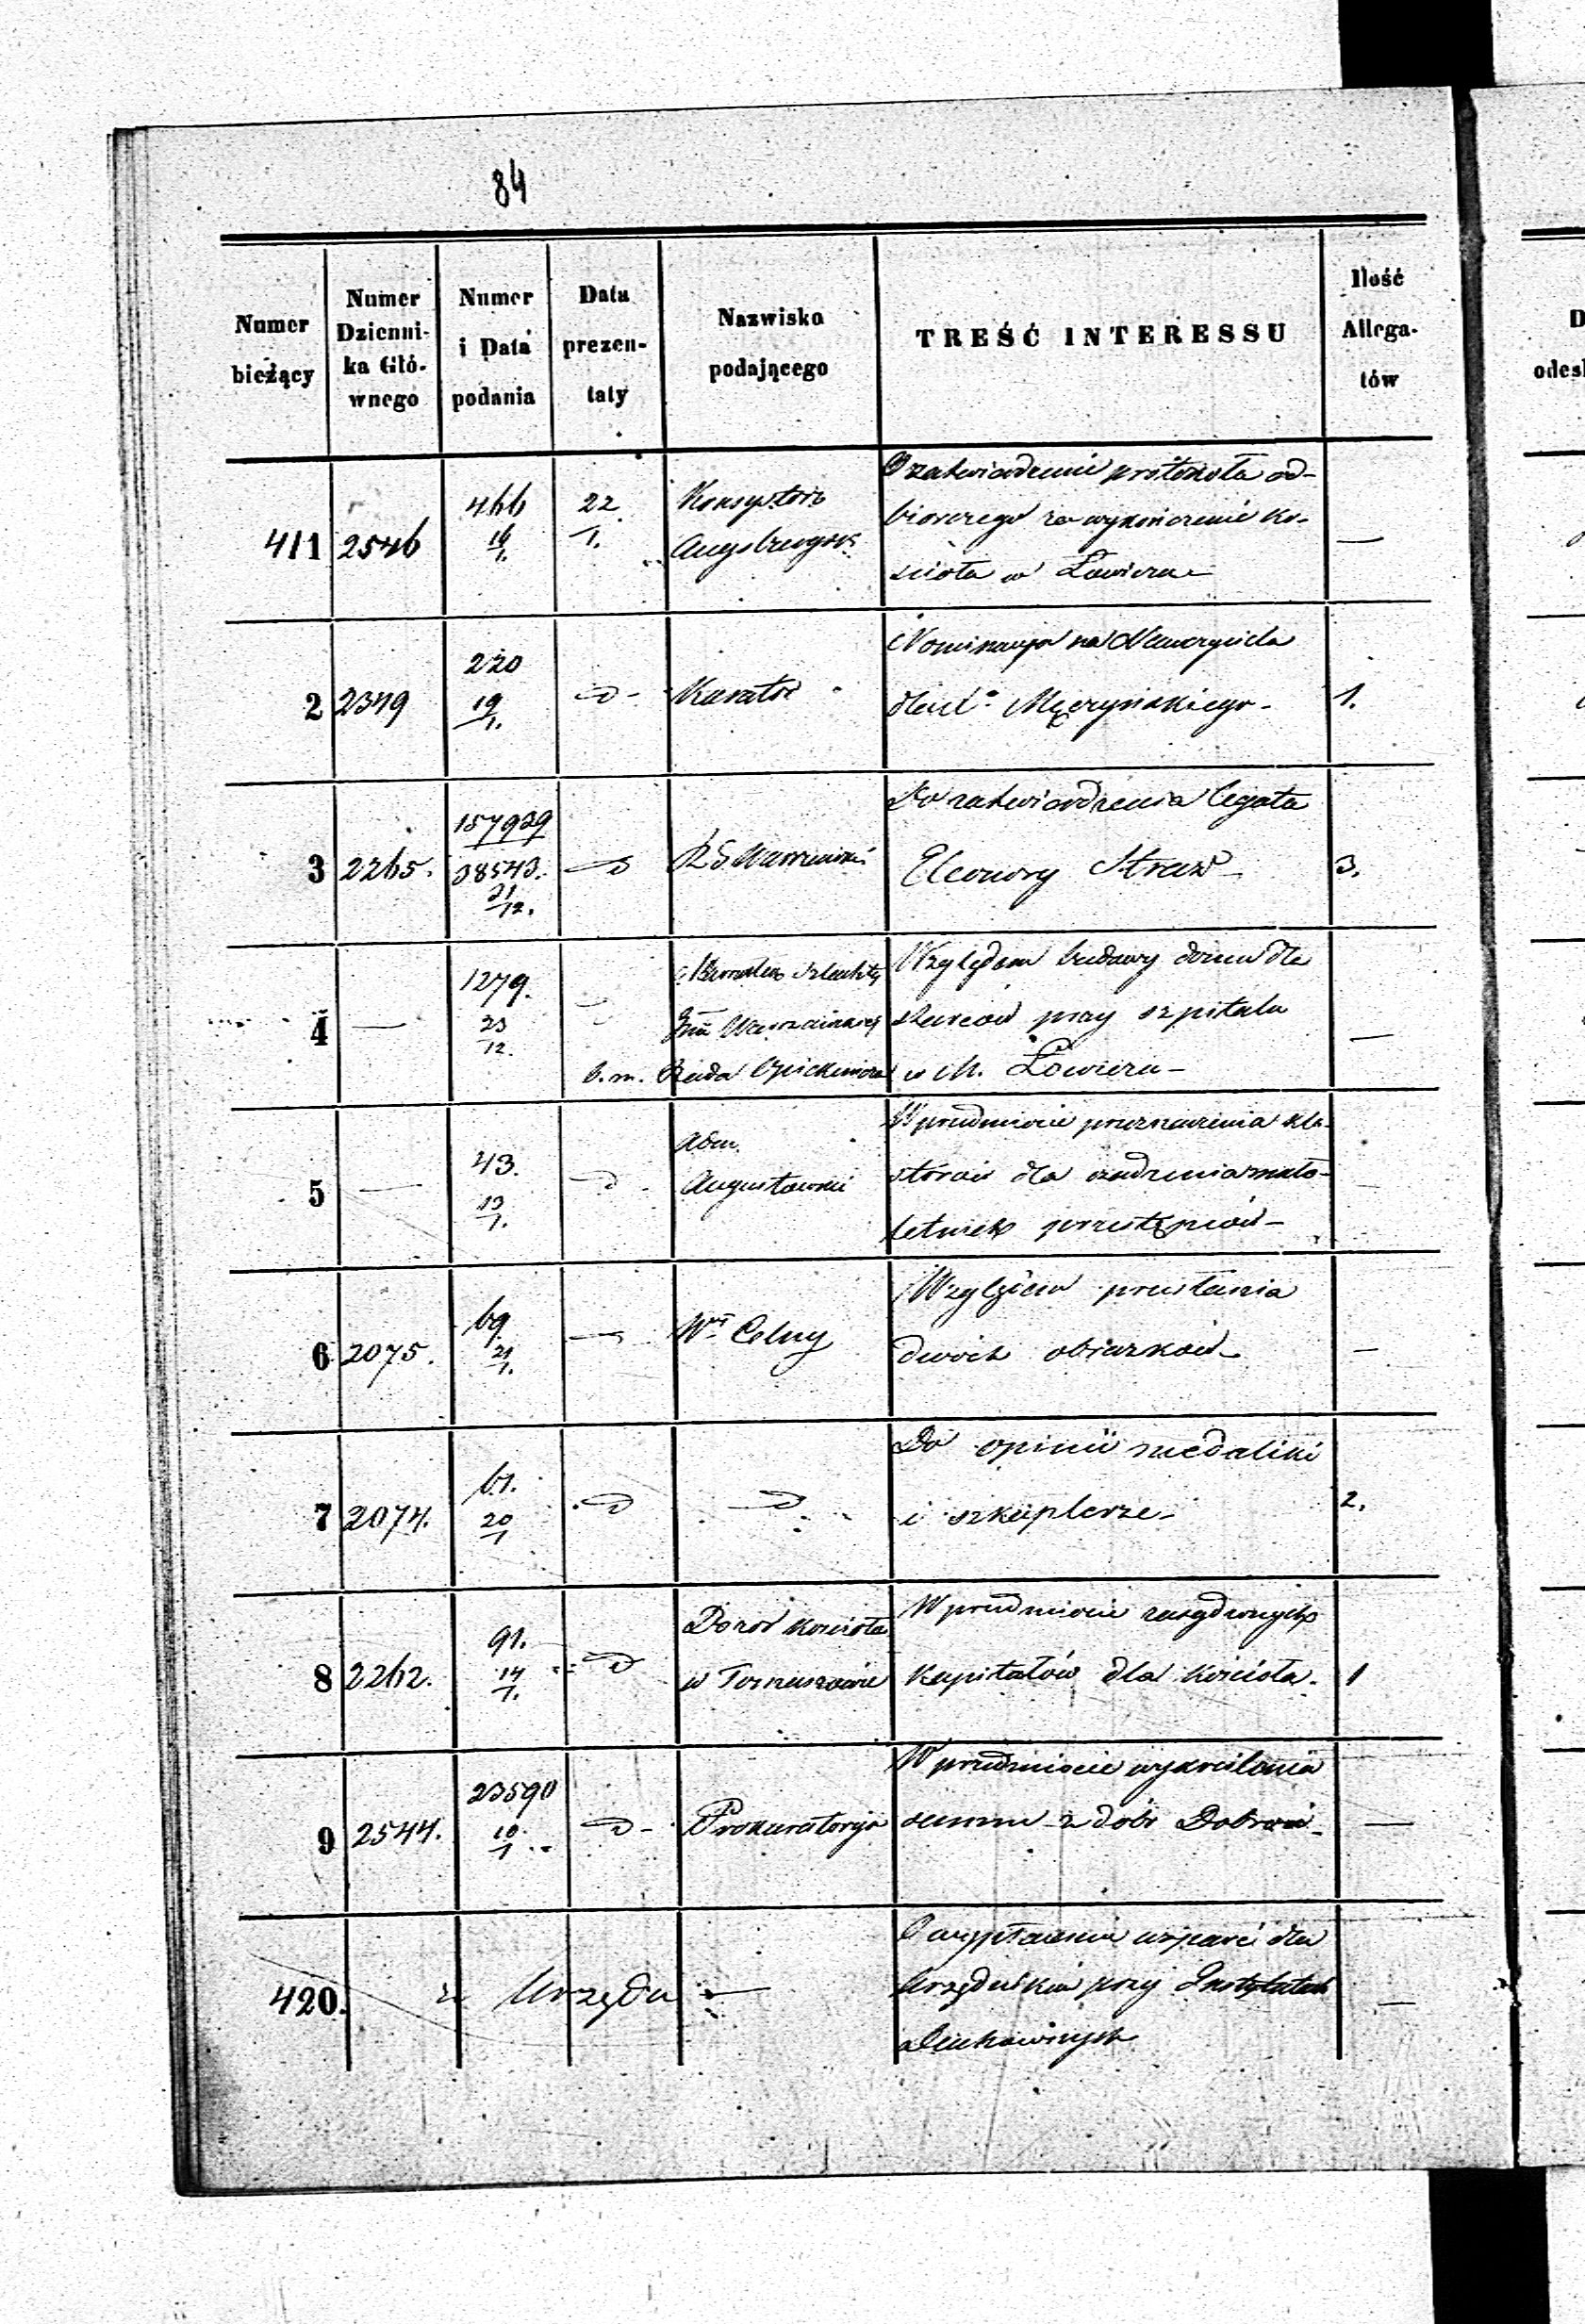 84
Numer bieżący
Numer Dzienni-ka Głó-wnego
Numer i Data podania
Data prezen-taty
Nazwisko podającego
TREŚĆ INTERESSU
Ilość Allega-tów
411 2546 466 16/1. 22/1. Konsystorz Augsburgsk
O zatwierdzenie protokołu od-
biorczego za wykończenie ko-
ścioła w Łowiczu —
2 2349 220 19/1. Kurator
Nominacya na Nauczyciela
dla Męczyńskiego - 1.
3 2265. 157939 38543. 31/12. R. G. Warszawski
Do zatwierdzenia legata
Eleonory 3.
4 — 1279. 23/12. Szlachty
Gub Warszawskiej
b. m. Rada Opiekuńcza
Względem budowy domu dla
starców przy szpitalu
w M. Łowiczu —
5 — 43. 13/1. Adm. Augustowski
W przedmiocie przeznaczenia kla-
sztorów dla osadzenia mało-
letnich przestępców —
6 2075. 69 21/1. Celny
Względem przesłania
dwóch obrazków —
7 2074. 61. 20/1
Do opinii medaliki
i szkaplerze - 2.
8 2262. 91. 14/1. Dozór Kościoła
w Tomaszowie
W przedmiocie
kapitałów dla kościoła. 1
9 2544. 23590 10/1 Prokuratorya
W przedmiocie wykreślenia
summ z dóbr —
420. z Urzędu —
O wypłacenie wsparć dla
przy Instytutach
Duchownych —
D
odes